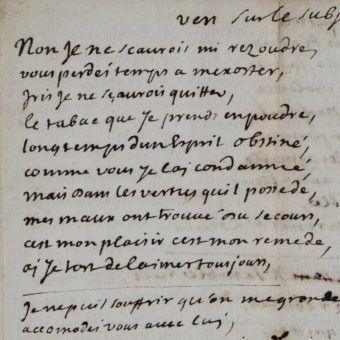 vers sur le sub
Non Je ne scaurois mi rezoudre,
vous perdez temps a mexorter,
Iris Je ne scaurois quitter,
le tabac que Je prends en poudre,
longtemps dun Esprit obstiné,
comme vous Je lai condamné,
mais dans les vertus quil possede,
mes maux ont trouvé du secours,
cest mon plaisir cest mon remede,
ai Je tort de laimer tousjours,
Je ne puis souffrir qu'on me gronde,
accomodez vous avec lui,